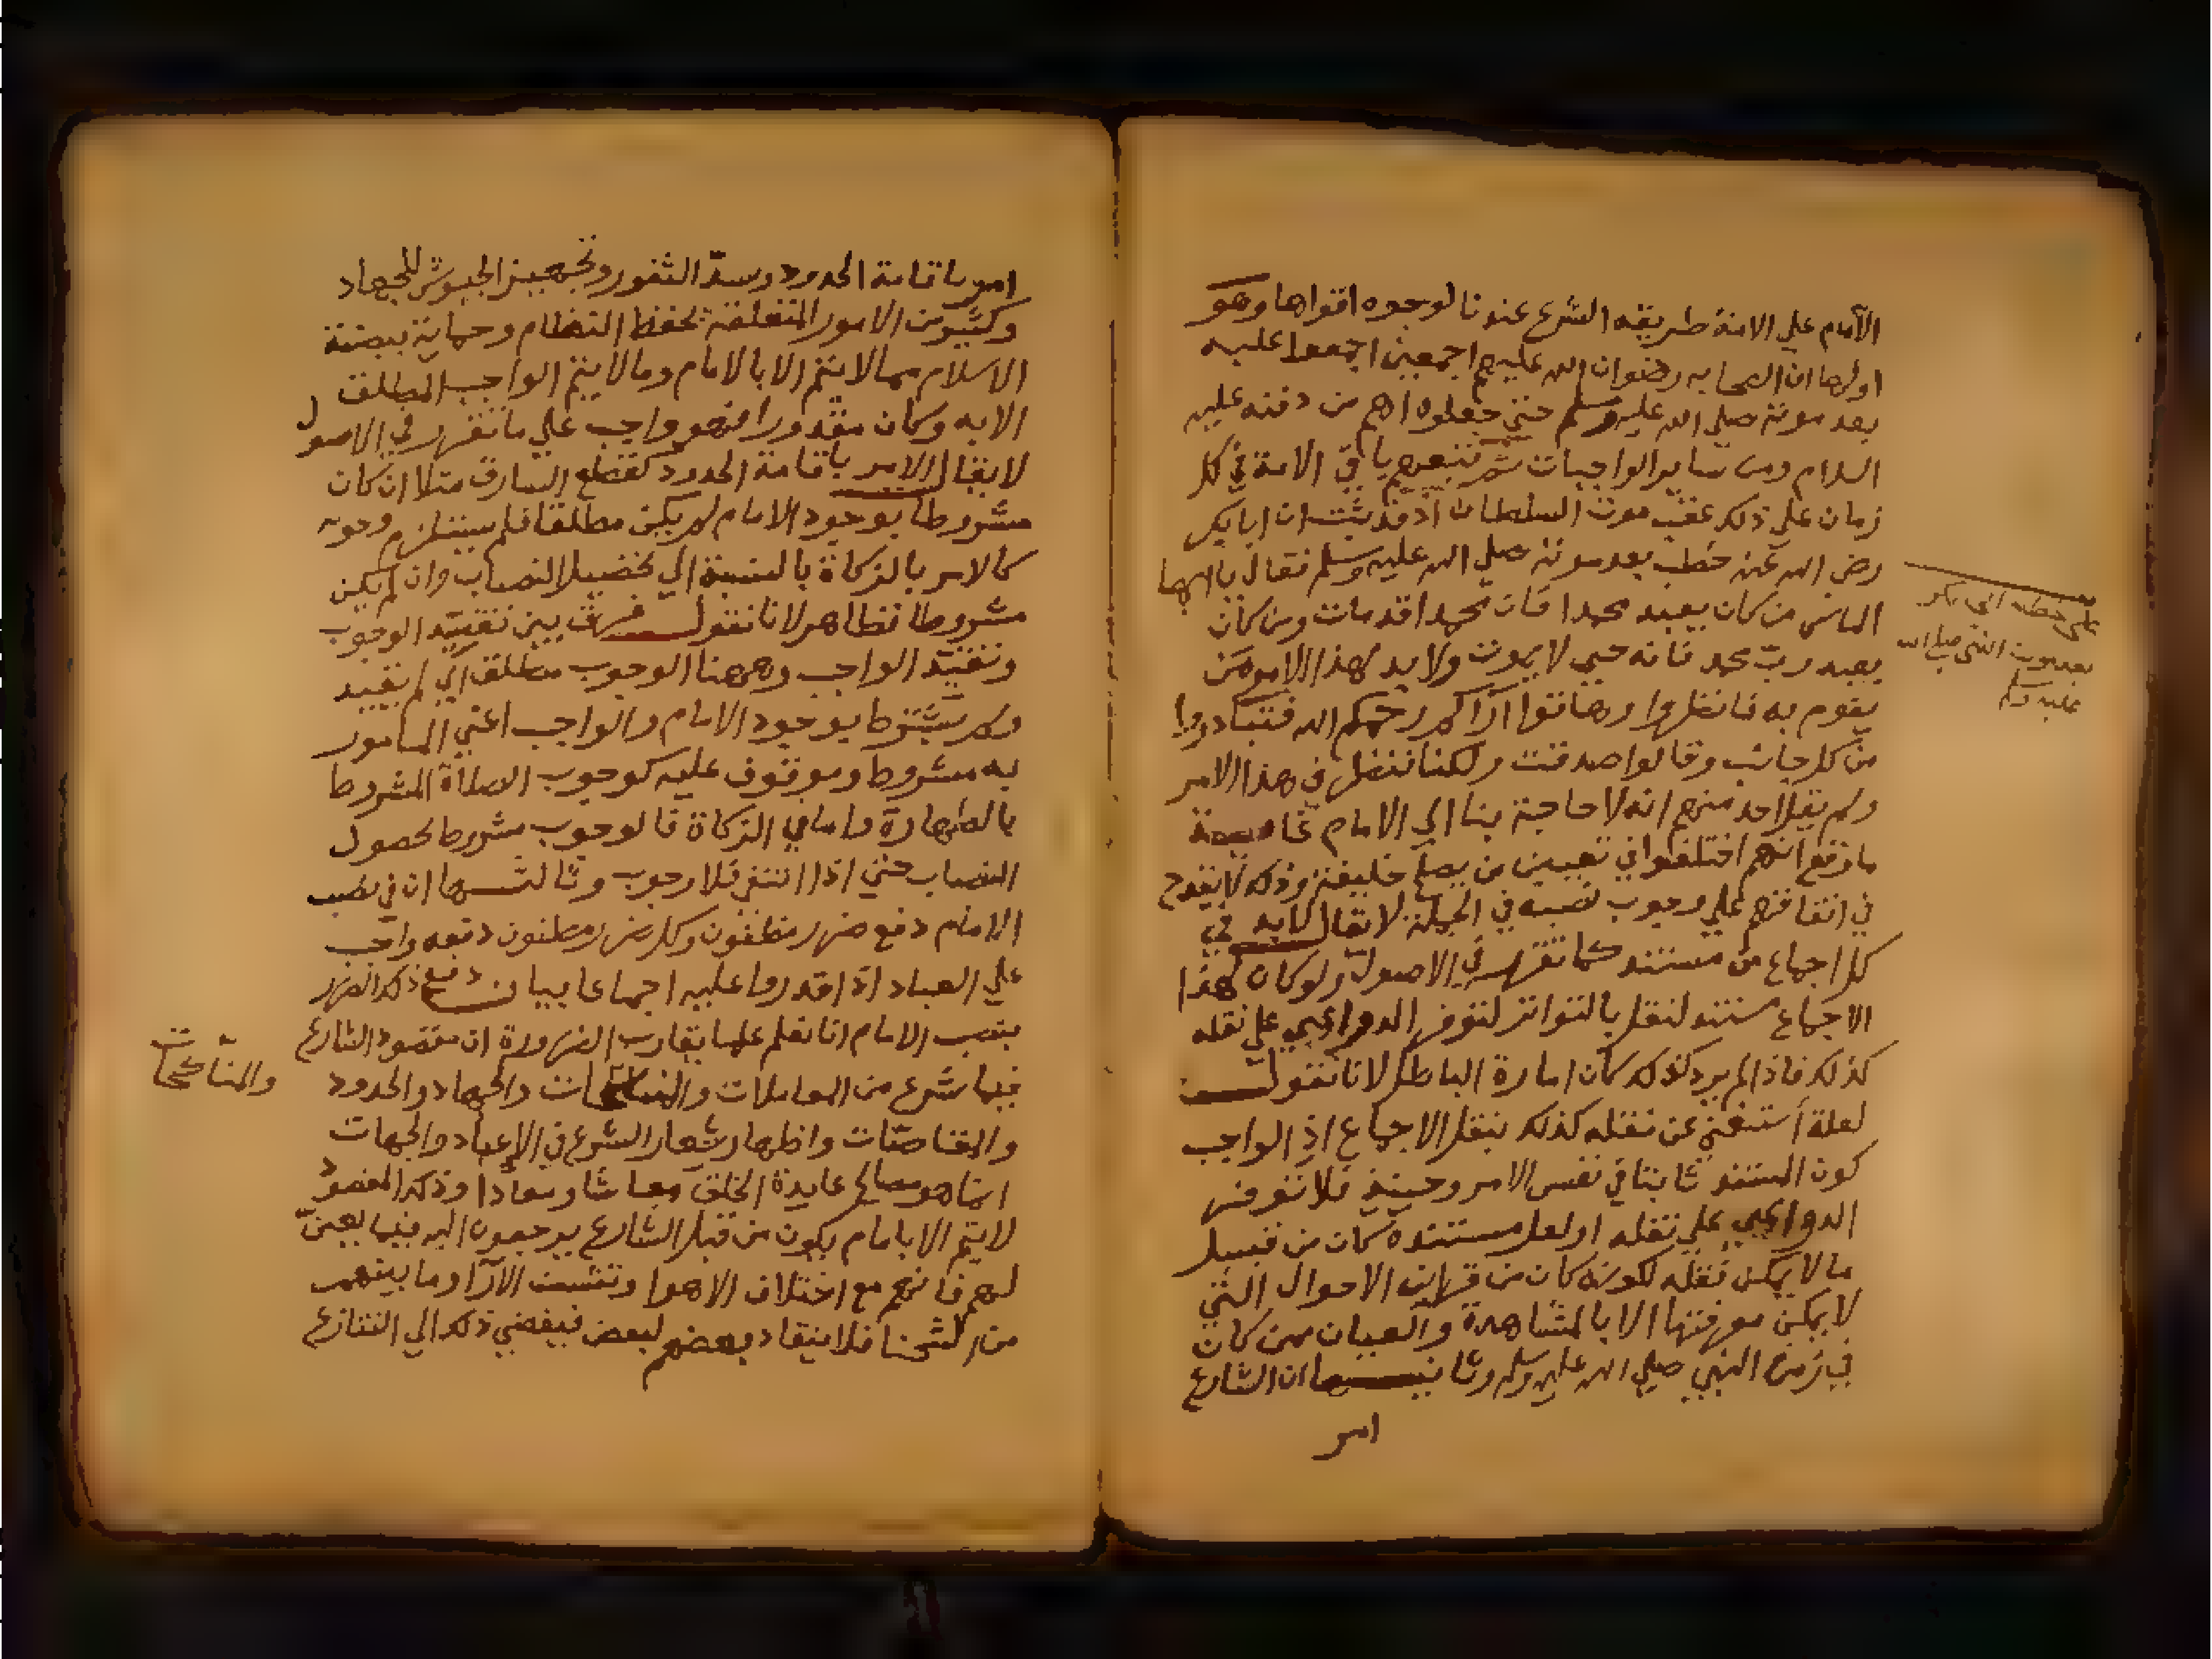 الامام علي الامة طريقه الشرع عندنا لوجوه اقواها وهو
اولها ان الصحابه رضوان الله عليهم اجمعين اجمعوا عليه
بعد موته صلي الله عليه وسلم حتي جعلوه اهم من دفنه عليه
السلام ومن ساير الواجبات ثم تتبعهم باقي الامة في كل
زمان علي ذلك عقب موت السلطان اذ قد ثبت ان ابا بكر
رضي الله عنه خطب بعد موته صلي الله عليه وسلم فقال يا ايها
الناس من كان يعبد محمدا فان محمدا قد مات ومن كان
يعبد ربّ محمد فانه حي لا يموت ولا بد لهذا الامر من
يقوم به فانظروا وهاتوا آراكم رحمكم الله فتبادروا
من كل جانب وقالوا صدقت ولكنا ننظر في هذا الامر
ولم يقل احد منهم انه لا حاجة بنا الي الامام غاية
ما وقع انهم اختلفوا في تعيين من يصلح خليفة وذلك لا يقدح
في اتفاقهم علي وجوب نصبه في الجملة لا يقال لابد في
كل اجماع من مستند كما تقرر في الاصول ولو كان لهذا
الاجماع مستند لنقل بالتواتر لتوفر الدواعي علي نقله
كذلك فاذا لم يرد كذلك كان امارة الباطل لانا نقول
لعله أستغني عن نقله كذلك بنقل الاجماع اذ الواجب
كون المستند ثابتا في نفس الامر وحينيذ فلا تتوفر
الدواعي علي نقله او لعل مستنده كان من قبيل
ما لا يمكن نقله لكونه كان من قراين الاحوال التي
لا يمكن معرفتها الا بالمشاهدة والعيان ممن كان
في زمن النبي صلي الله عليه وسلم وثانيها ان الشارع
امر
علي خطبة ابي بكر
بعد موت النبي صلي الله
عليه وسلم
امر باقامة الحدود وسدّ الثغور وتجهيز الجيوش للجهاد
وكثير من الامور المتعلقة بحفظ النظام وحماية بيضة
الاسلام مما لا يتم الا بالامام وما لا يتم الواجب المطلق
الا به وكان مقدورا فهو واجب علي ما تقرر في الاصول
لا يقال الامر باقامة الحدود كقطع السارق مثلا ان كان
مشروطا بوجود الامام لم يكن مطلقا فلم يستلزم وجوبه
كالامر بالزكاة بالنسبة الي تحصيل النصاب وان لم يكن
مشروطا فظاهر لانا نقول فرق بين تقييد الوجوب
وتقييد الواجب وههنا الوجوب مطلق اي لم يقيد
ولم يشترط بوجود الامام والواجب اعني المامور
به مشروط وموقوف عليه كوجوب الصلاة المشروط
بالطهارة واما في الزكاة فالوجوب مشروط بحصول
النصاب حتي اذا انتفي فلا وجوب وثالثها ان في نصب
الامام دفع ضرر مظنون وكل ضرر مظنون دفعه واجب
علي العباد اذا قدروا عليه اجماعا بيان دفع ذلك الضرر
بنصب الامام انا نعلم علما يقارب الضرورة ان مقصود الشارع
فيما شرع من المعاملات والمناكحات والجهاد والحدود
والمقاصّات واظهار شعار الشرع في الاعياد والجهات
انما هو مصالح عايدة الخلق معاشا ومعادا وذلك المقصود
لا يتم الا بامام يكون من قبل الشارع يرجعون اليه فيما يعنّ
لهم فانهم مع اختلاف الاهوا وتشتت الارآ وما بينهم
من الشحنا فلا ينقاد بعضهم لبعض فيفضي ذلك الي التنازع
والمناكحات